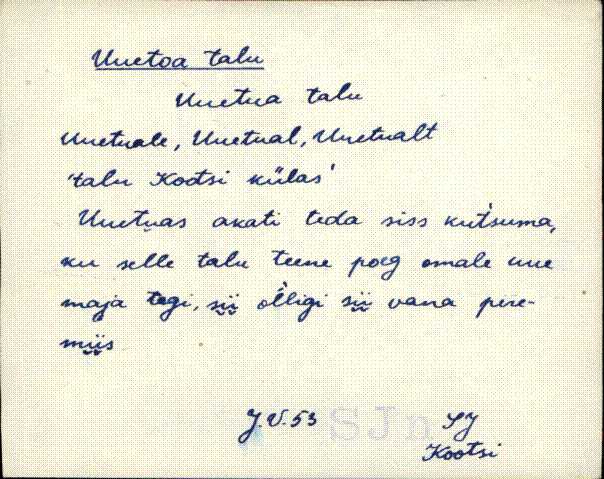 Uuetoa talu
Uuetua talu
Uuetuale, Uuetual, Uuetualt
'talu Kootsi külas'
Uuetu̬as akati teda siss kut́suma,
ku selle talu teene poeg omale uue
maja tegi, sii̬ ol̀ligi sii̬ vana pere-
mii̬s
J.V. 53 SJn SJ
Kootsi